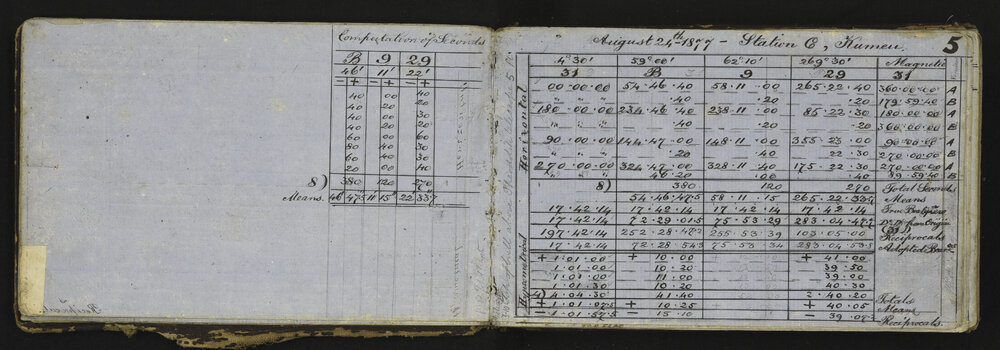 Computation of Seconds
B 9 29
46' 11' 22'
- + - + - +
40 00 40
40 20 20
40 00 30
40 20 20
60 00 60
80 40 30
60 40 30
20 00 40
8) 380 120 270
Means. 46 47.5 11 15 22 33.7
August 24th 1877 - Station C, Kumeu. 5
4° 30' 59° 00' 62° 10' 269° 30' Magnetic
31 B 9 29 31
00.00.00 54.46.40 58.11.00 265.22.40 360.00.00 A
" " " .40 .20 .20 179.59.40 B
180.00.00 234.46.40 238.11.00 85.22.30 180.00.00 A
" " " .40 .20 .20 360.00.00 B
90.00.00 144.47.00 148.11.00 355.23.00 90.00.00 A
" " " .20 .40 22.30 270.00.00 B
270.00.00 324.47.00 328.11.40 175.22.30 270.00.00 A
46.20 .00 .40 89.59.40 B
8) 380 120 270 Total Seconds
54.46.47.5 58.11.15 265.22.33.7 Means
17.42.14 17.42.14 17.42.14 17.42.14
17.42.14 72.29.01.5 75.53.29 283.04.47.7
197.42.14 252.28.47.7 255.53.39 103.05.00 Reciprocals
17.42.14 72.28.54.3 75.53.34 283.04.53.7 Adopted
+ 1.01.00 + 10.00 + 41.00
1.01.00 10.20 39.50
1.01.00 11.00 39.00
1.01.30 10.20 40.30
4) 4.04.30 41.40 2.40.20 Totals
+ 1.01.07.5 + 10.25 + 40.05 Means
- 1.01.57.5 - 15.10 - 39.07.5 Reciprocals.
Horizontal
Hypsometrical